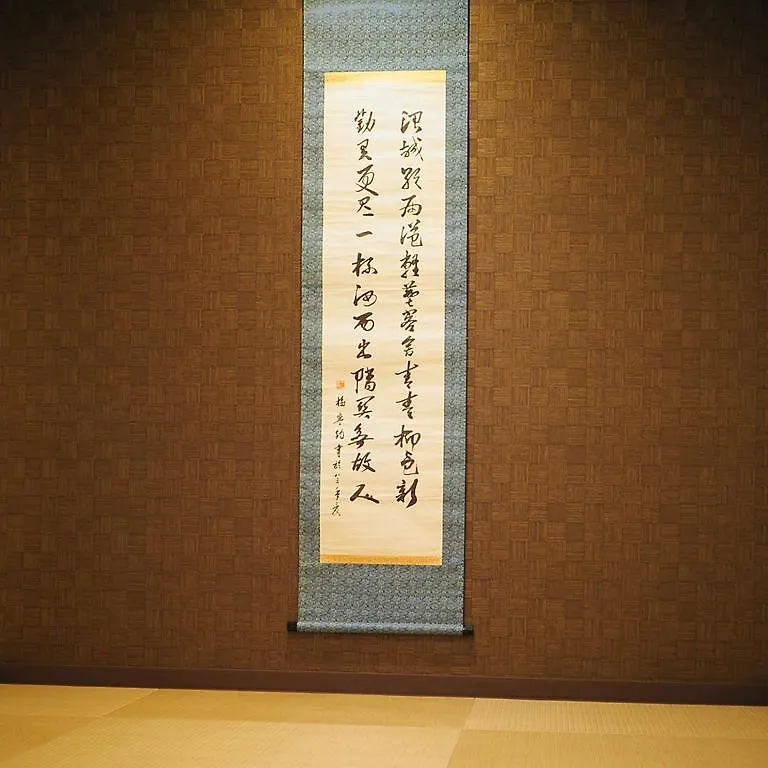 渭城朝雨浥輕塵客舍青青柳色新
勸君更盡一杯酒西出陽關無故人
書於